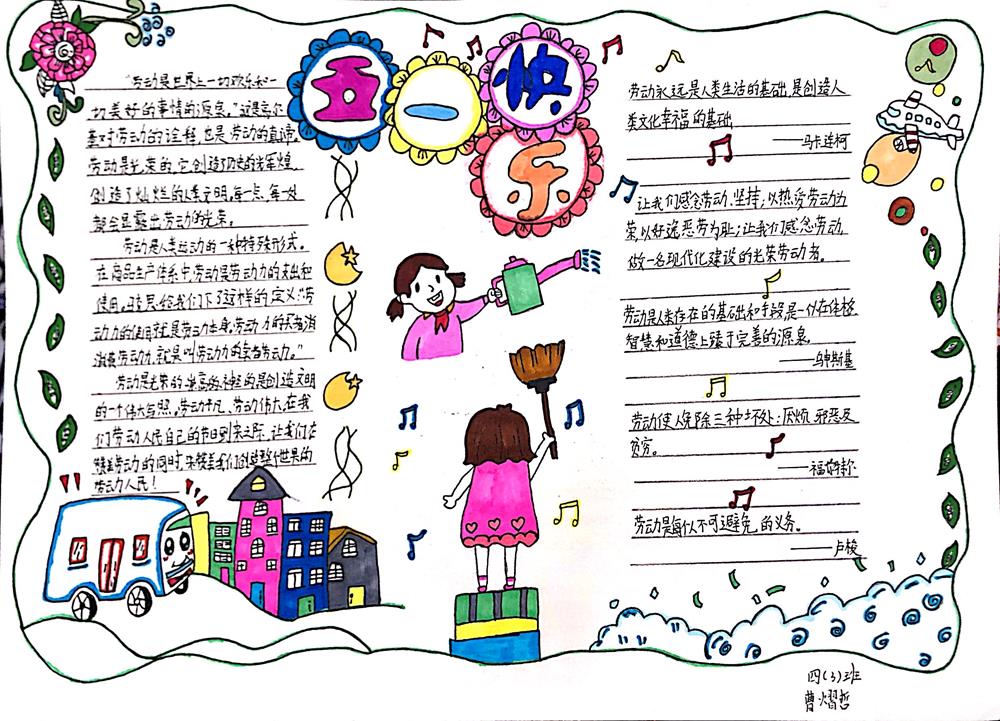 五一快乐
“劳动是世界上一切欢乐和一
切美好的事情的源泉。”这是高尔
基对劳动的诠释,也是劳动的真谛。
劳动是光荣的,它创造了历史的光辉煌,
创造了灿烂的人类文明,每一点、每一处
都会显露出劳动的光荣。
劳动是人类运动的一种特殊形式。
在商品生产体系中,劳动是劳动力的支出和
使用。马克思给我们下了这样的定义:“劳
动力的使用就是劳动本身,劳动力的买者消
消费劳动力,就是叫劳动力的卖者劳动。”
劳动是光荣的 崇高的 神圣的是创造文明
的一个伟大写照。劳动平凡、劳动伟大,在我
们劳动人民自己的节日到来之际,让我们在
劳动的同时,来 我们创造整个世界的
劳动人民!
劳动永远是人类生活的基础,是创造人
类文化幸福的基础
——马卡连柯
让我们感念劳动、坚持;以热爱劳动为
荣,以好逸恶劳为耻;让我们感念劳动,
做一名现代化建设的光荣劳动者。
劳动是人类存在的基础和手段,是一个人在体格
智慧和道德上臻于完善的源泉
——乌申斯基
劳动使人免除三种坏处:厌烦 邪恶及
贫穷。
劳动是每个人不可避免 的义务。
——卢梭
四(3)班
曹熠哲